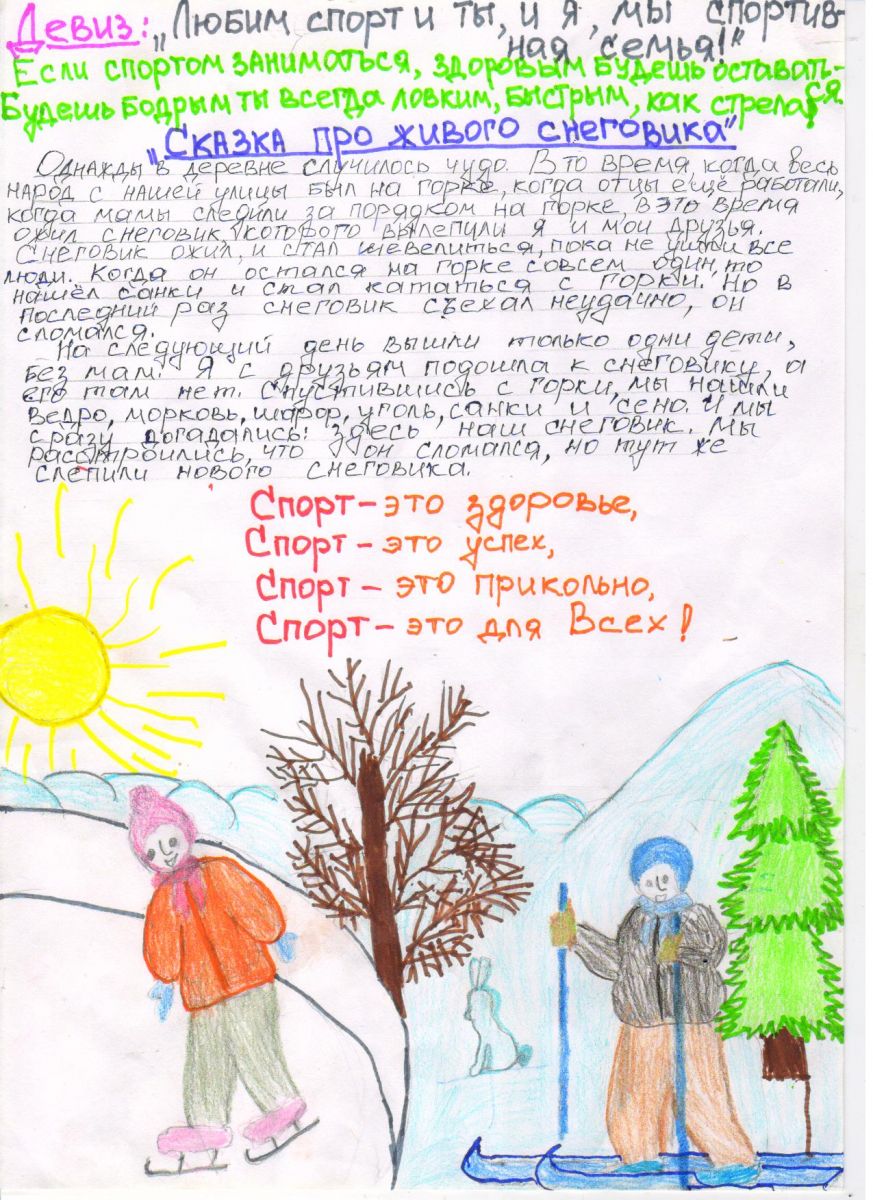 Девиз: „Любим спорт и ты, и я, мы спортив-
ная семья!"
Если спортом заниматься, здоровым будешь оставать-
ся.
Будешь бодрым ты всегда ловким, быстрым, как стрела!
„Сказка про живого снеговика"
Однажды в деревне случилось чудо. В то время, когда весь
народ с нашей улицы был на горке, когда отцы ещё работали,
когда мамы следили за порядком на горке, в это время
ожил снеговик, которого вылепили я и мои друзья.
Снеговик ожил, и стал шевелиться, пока не ушли все
люди. Когда он остался на горке совсем один, то
нашёл санки и стал кататься с горки. Но в
последний раз снеговик съехал неудачно, он
сломался.
На следующий день вышли только одни дети,
без мам. Я с друзьям подошла к снеговику, а
его там нет. Спустившись с горки, мы нашли
ведро, морковь, шарф, уголь, санки и сено. И мы
сразу догадались: здесь наш снеговик. Мы
расстроились, что он сломался, но тут же
слепили нового снеговика.
Спорт - это здоровье,
Спорт - это успех,
Спорт - это прикольно,
Спорт - это для Всех!